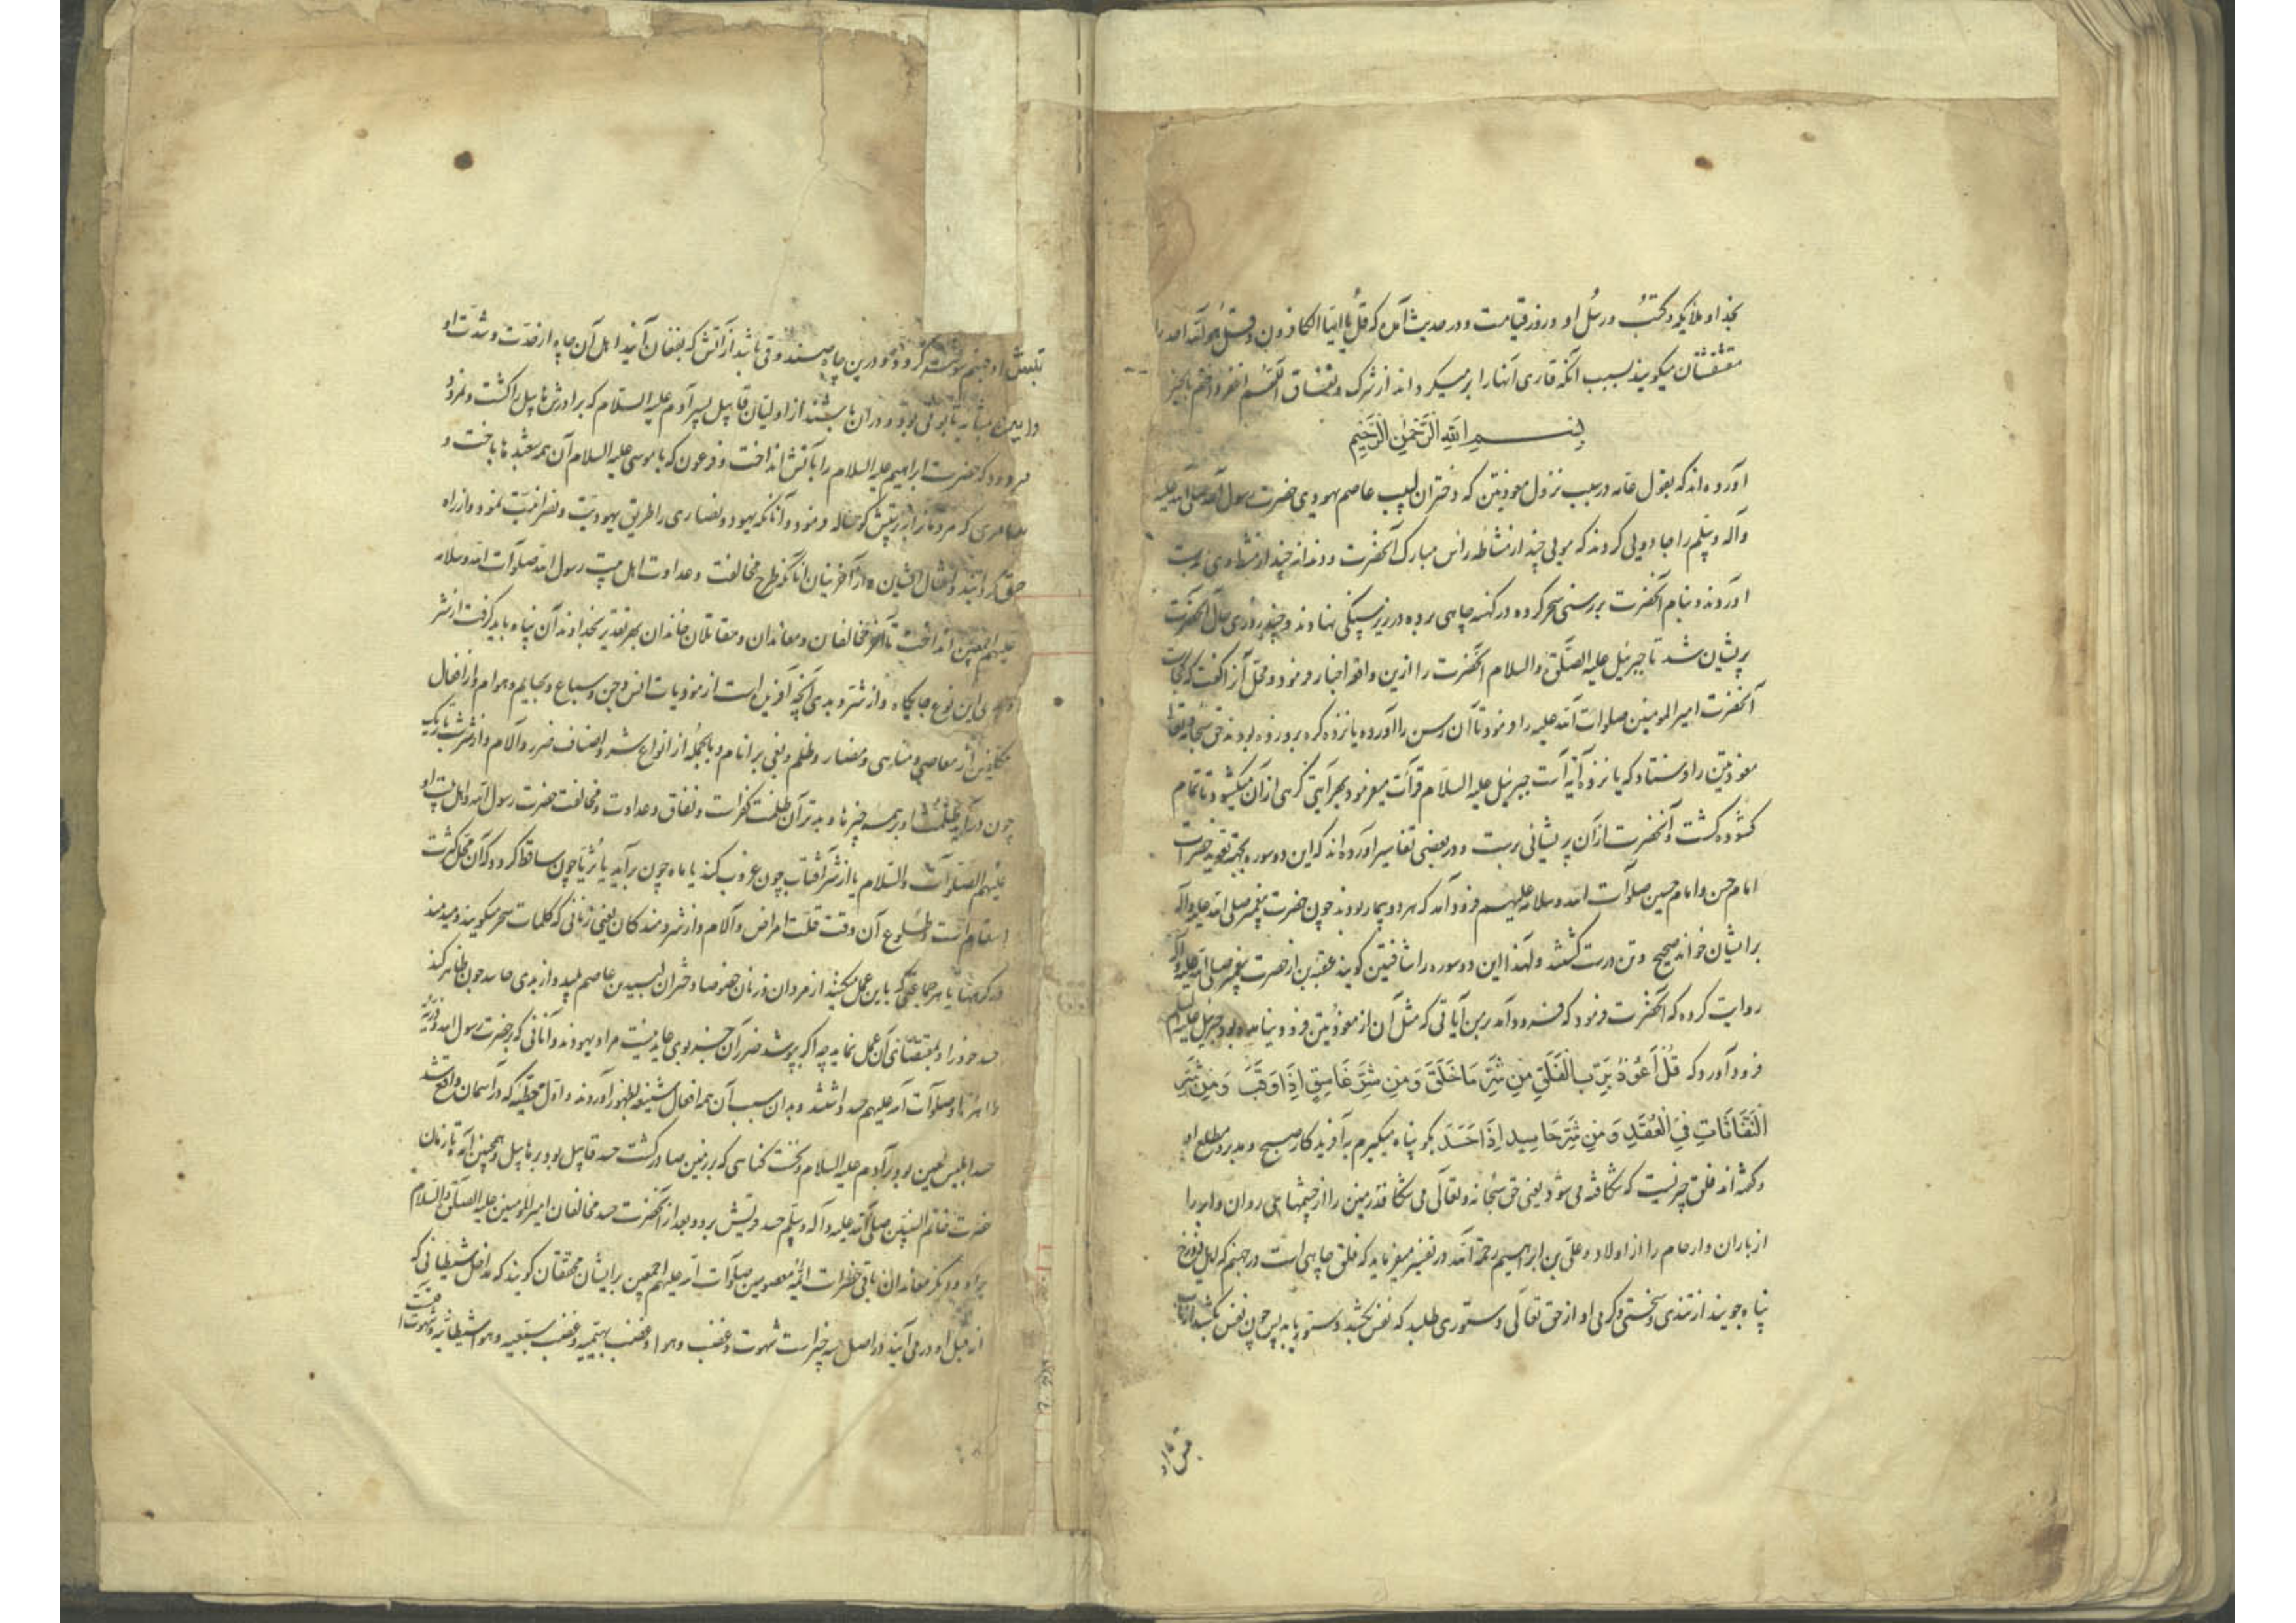 بخدا و ملایکه و کتب و رسل او و روز قیامت و در حدیث آمده که قل یا ایها الکافرون و قل هو الله احد را
مقشقشتان میکویند بسبب آنکه قاری آنها را بر میکرداند از شرک و نفاق اللهم اغفر واختم بالخیر
بسم الله الرحمن الرحیم
آورده‌اند که بقول عامه در سبب نزول معوذتین که دختران لبید عاصم یهودی حضرت رسول الله صلی الله علیه
و آله و سلم را جادویی کردند که مویی چند از مشاطه راس مبارک آنحضرت و دندانه چند از مشط وی بدست
آوردند و بنام آنحضرت بر رسنی سحر کرده در کنه چاهی برده در زیر سنکی نهادند و چند روزی حال آنحضرت
پریشان شد تا جبرئیل علیه الصلوة والسلام آنحضرت را ازین واقعه اخبار فرمود و محل آنرا کفت که کجاست
آنحضرت امیرالمومنین صلوات الله علیه را فرمود تا آن رسن را آورده یازده کره برو زده بودند حق سبحانه و تعالی
معوذتین را فرستاد که یازده آیة است جبرئیل علیه السلام قرآئت میفرمود بهر آیتی کرهی از آن میکشود تا تمام
کشوده کشت و آنحضرت از آن پریشانی برست و در بعضی تفاسیر آورده‌اند که این دو سوره بجهة تعویذ حضرات
امام حسن و امام حسین صلوات الله و سلامه علیهم فرود آمد که هر دو بیمار بودند چون حضرت پیغمبر صلی الله علیه و آله
بر ایشان خواند صحیح و تن درست کشتند و لهذا این دو سوره را شافیتین کویند عقبه بن از حضرت پیغمبر صلی الله علیه و آله
روایت کرده که آنحضرت فرمود که فرود آمد بر من آیاتی که مثل آن از معوذتین فرود نیامده بود جبرئیل علیه السلام
فرود آورد که قُل اَعُوذُ بِرَبِّ الْفَلَقِ مِن شَرِّ مَا خَلَقَ وَمِن شَرِّ غَاسِقٍ اِذَا وَقَبَ وَمِن شَرِّ
النَّفَّاثَاتِ فِی الْعُقَدِ وَمِن شَرِّ حَاسِدٍ اِذَا حَسَدَ بکو پناه میکیرم به آفریدکار صبح و مدبر و مطلع او
و کفته‌اند فلق چیزیست که شکافته می شود یعنی حق سبحانه و تعالی می شکافد زمین را از چشمهای روان و ابر را
از باران و ارحام را از اولاد و علی بن ابراهیم رحمة الله در تفسیر میفرماید که فلق چاهی است در جهنم که اهل دوزخ
پناه جویند از تندی و سختی و کرمی او از حق تعالی دستوری طلبد که نفس بکشد دستور یابد پس چون نفس بکشد از تاب
تبش او جهنم سوخته کردد و درین چاه صندوقی باشد از آتش که بفغان آیند اهل آن چاه از حدت و شدت او
بمثابه تابوتی بود و در آن باشند از اولیان قابیل پسر آدم علیه السلام که برادرش هابیل را کشت و نمرود
مردود که حضرت ابراهیم علیه السلام را بآتش انداخت و فرعون که با موسی علیه السلام آن همه شعبدها باخت و
سامری که مردم را بپرستش کوساله فرمود و آنانکه یهود و نصاری را طریق یهودیت و نصرانیت نمود و از راه
حق کردانید و امثال ایشان و از آخرینیان آنانکه طرح مخالفت و عداوت اهل بیت رسول الله صلوات الله و سلامه
علیهم اجمعین انداخت تا آخر مخالفان و معاندان و مقاتلان خاندان بهر تقدیر بخداوند آن پناه باید کرفت از شر
این نوع جایکاه و از شر و بدی آنچه آفریده است از موذیات انس و جن و سباع و بهایم و هوام و از افعال
مکلفین از معاصی و مناهی و مضار و ظلم و بغی بر انام و بالجمله از انواع شر و اصناف ضرر و آلام و از شر شب تاریک
چون درآید ظلمت او بر همه چیزها و بدتر آن ظلمت کفر است و نفاق و عداوت و مخالفت حضرت رسول الله و اهل بیت او
علیهم الصلوات والسلام یا از شر آفتاب چون غروب کند یا ماه چون برآید یا ثریا چون ساقط کردد که آن محل کثرت
اسقام است و طلوع آن وقت قلت امراض و آلام و از شر دمندکان یعنی زنانی که کلمات سحر میکویند و میدمند
در کرهها یا هر جماعتی که باین عمل میکنند از مردان و زنان خصوصا دختران لبید بن عاصم پلید و از بدی حاسد چون ظاهر کند
حسد خود را و بمقتضای آن عمل نماید چه اگر بپوشد ضرر آن جز بوی عاید نیست مراد یهودند و آنانی که بحضرت رسول الله و ذریة
طاهره او صلوات الله علیهم حسد داشتند و بدان سبب آن همه افعال شنیعه بظهور آوردند و اول خطیئه که در آسمان واقع شد
حسد ابلیس لعین بود بر آدم علیه السلام و نخست کناهی که بر زمین صادر کشت حسد قابیل بود بر هابیل و همچنین آمد تا زمان
حضرت خاتم النبیین صلی الله علیه و آله و سلم حسد قریش برد و بعد از آنحضرت حسد مخالفان امیرالمومنین علیه الصلوة والسلام
بر او و دیکر معاندان باقی حضرات ائمه معصومین صلوات الله علیهم اجمعین بر ایشان محققان کویند که مداخل شیطانی که
از قبل او در می آیند در اصل سه چیز است شهوت و غضب و هوا و غضب بهیمیه و غضب سبعیه و هوا شیطانیه و شهوت